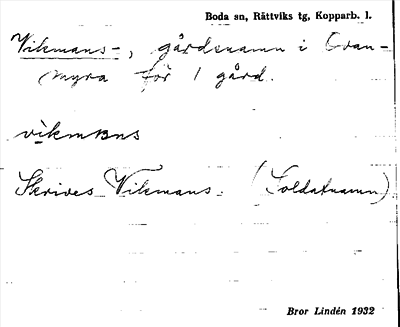 Boda sn, Rättviks tg, Kopparb. l.
Vikmans-, gårdsnamn i Ovan-
myra för 1 gård.
vikmans
Skrives Vikmans. (Soldatnamn)
Bror Lindén 1932